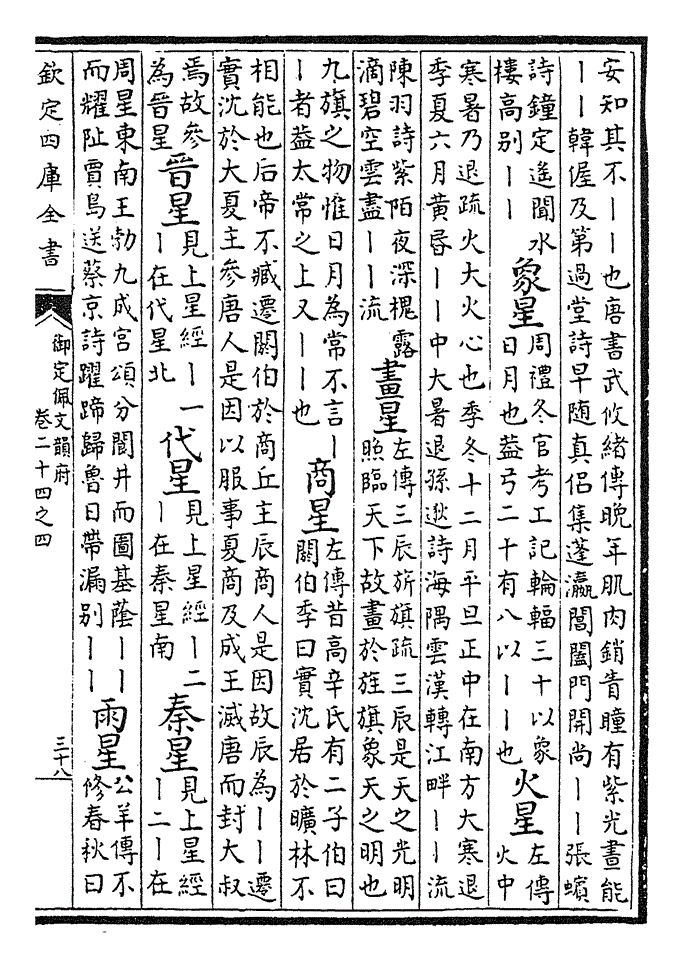 安知其不丨丨也唐書武攸緒傳晚年肌肉銷眚瞳有紫光晝能
丨丨韓偓及第過堂詩早随真侶集蓬瀛閶闔門開尚丨丨張蠙
詩鐘定遙聞水
樓高别丨丨
象星
周禮冬官考工記輪輻三十以象
日月也葢弓二十有八以丨丨也
火星
左傳
火中
寒暑乃退疏火大火心也季冬十二月平旦正中在南方大寒退
季夏六月黄昏丨丨中大暑退孫逖詩海隅雲漢轉江畔丨丨流
陳羽詩紫陌夜深槐露
滴碧空雲盡丨丨流
畫星
左傳三辰旂旗疏三辰是天之光明
照臨天下故畫於旌旗象天之明也
九旗之物惟日月為常不言丨
丨者葢太常之上又丨丨也
商星
左傳昔高辛氏有二子伯曰
閼伯季曰實沈居於曠林不
相能也后帝不臧遷閼伯於商丘主辰商人是因故辰為丨丨遷
實沈於大夏主參唐人是因以服事夏商及成王滅唐而封大叔
焉故參
為晉星
晉星
見上星經丨一
丨在代星北
代星
見上星經丨二
丨在秦星南
秦星
見上星經
丨二丨在
周星東南王勃九成宮頌分閬井而圖基蔭丨丨
而耀阯賈島送蔡京詩躍蹄歸魯日帶漏别丨丨
雨星
公羊傳不
修春秋曰
欽定四庫全書
御定佩文韻府
卷二十四之四
三十八